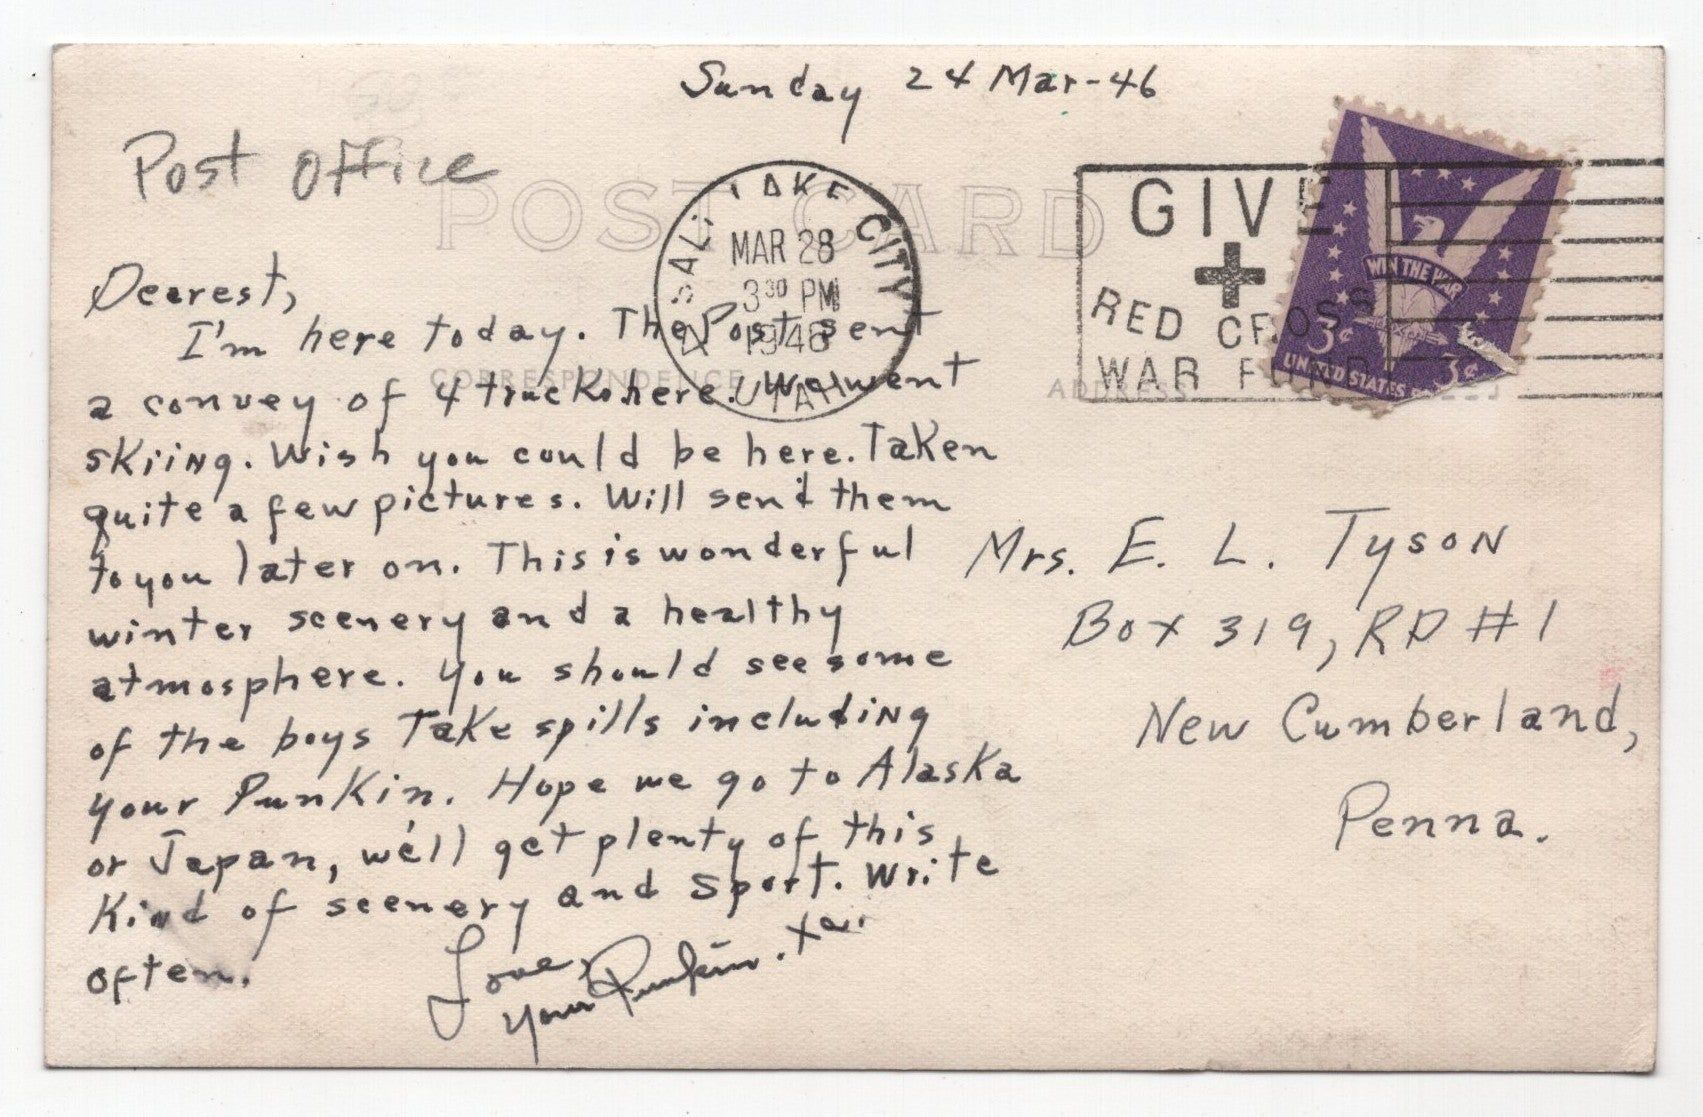 Sunday 24 Mar-46
Post Office
POST CARD
SALT LAKE CITY
MAR 28
3 30 PM
1946
UTAH
GIVE
RED CROSS
WAR FUND
WIN THE WAR
3¢ 3¢
UNITED STATES
CORRESPONDENCE
ADDRESS
Dearest,
I'm here today. The Post sent
a convey of 4 trucks here. We went
skiing. Wish you could be here. Taken
quite a few pictures. Will send them
to you later on. This is wonderful
winter scenery and a healthy
atmosphere. You should see some
of the boys Take spills including
your Punkin. Hope we go to Alaska
or Japan, we'll get plenty of this
Kind of scenery and sport. Write
often.
Love,
Your Punkin.
Mrs. E. L. Tyson
Box 319, RD #1
New Cumberland,
Penna.